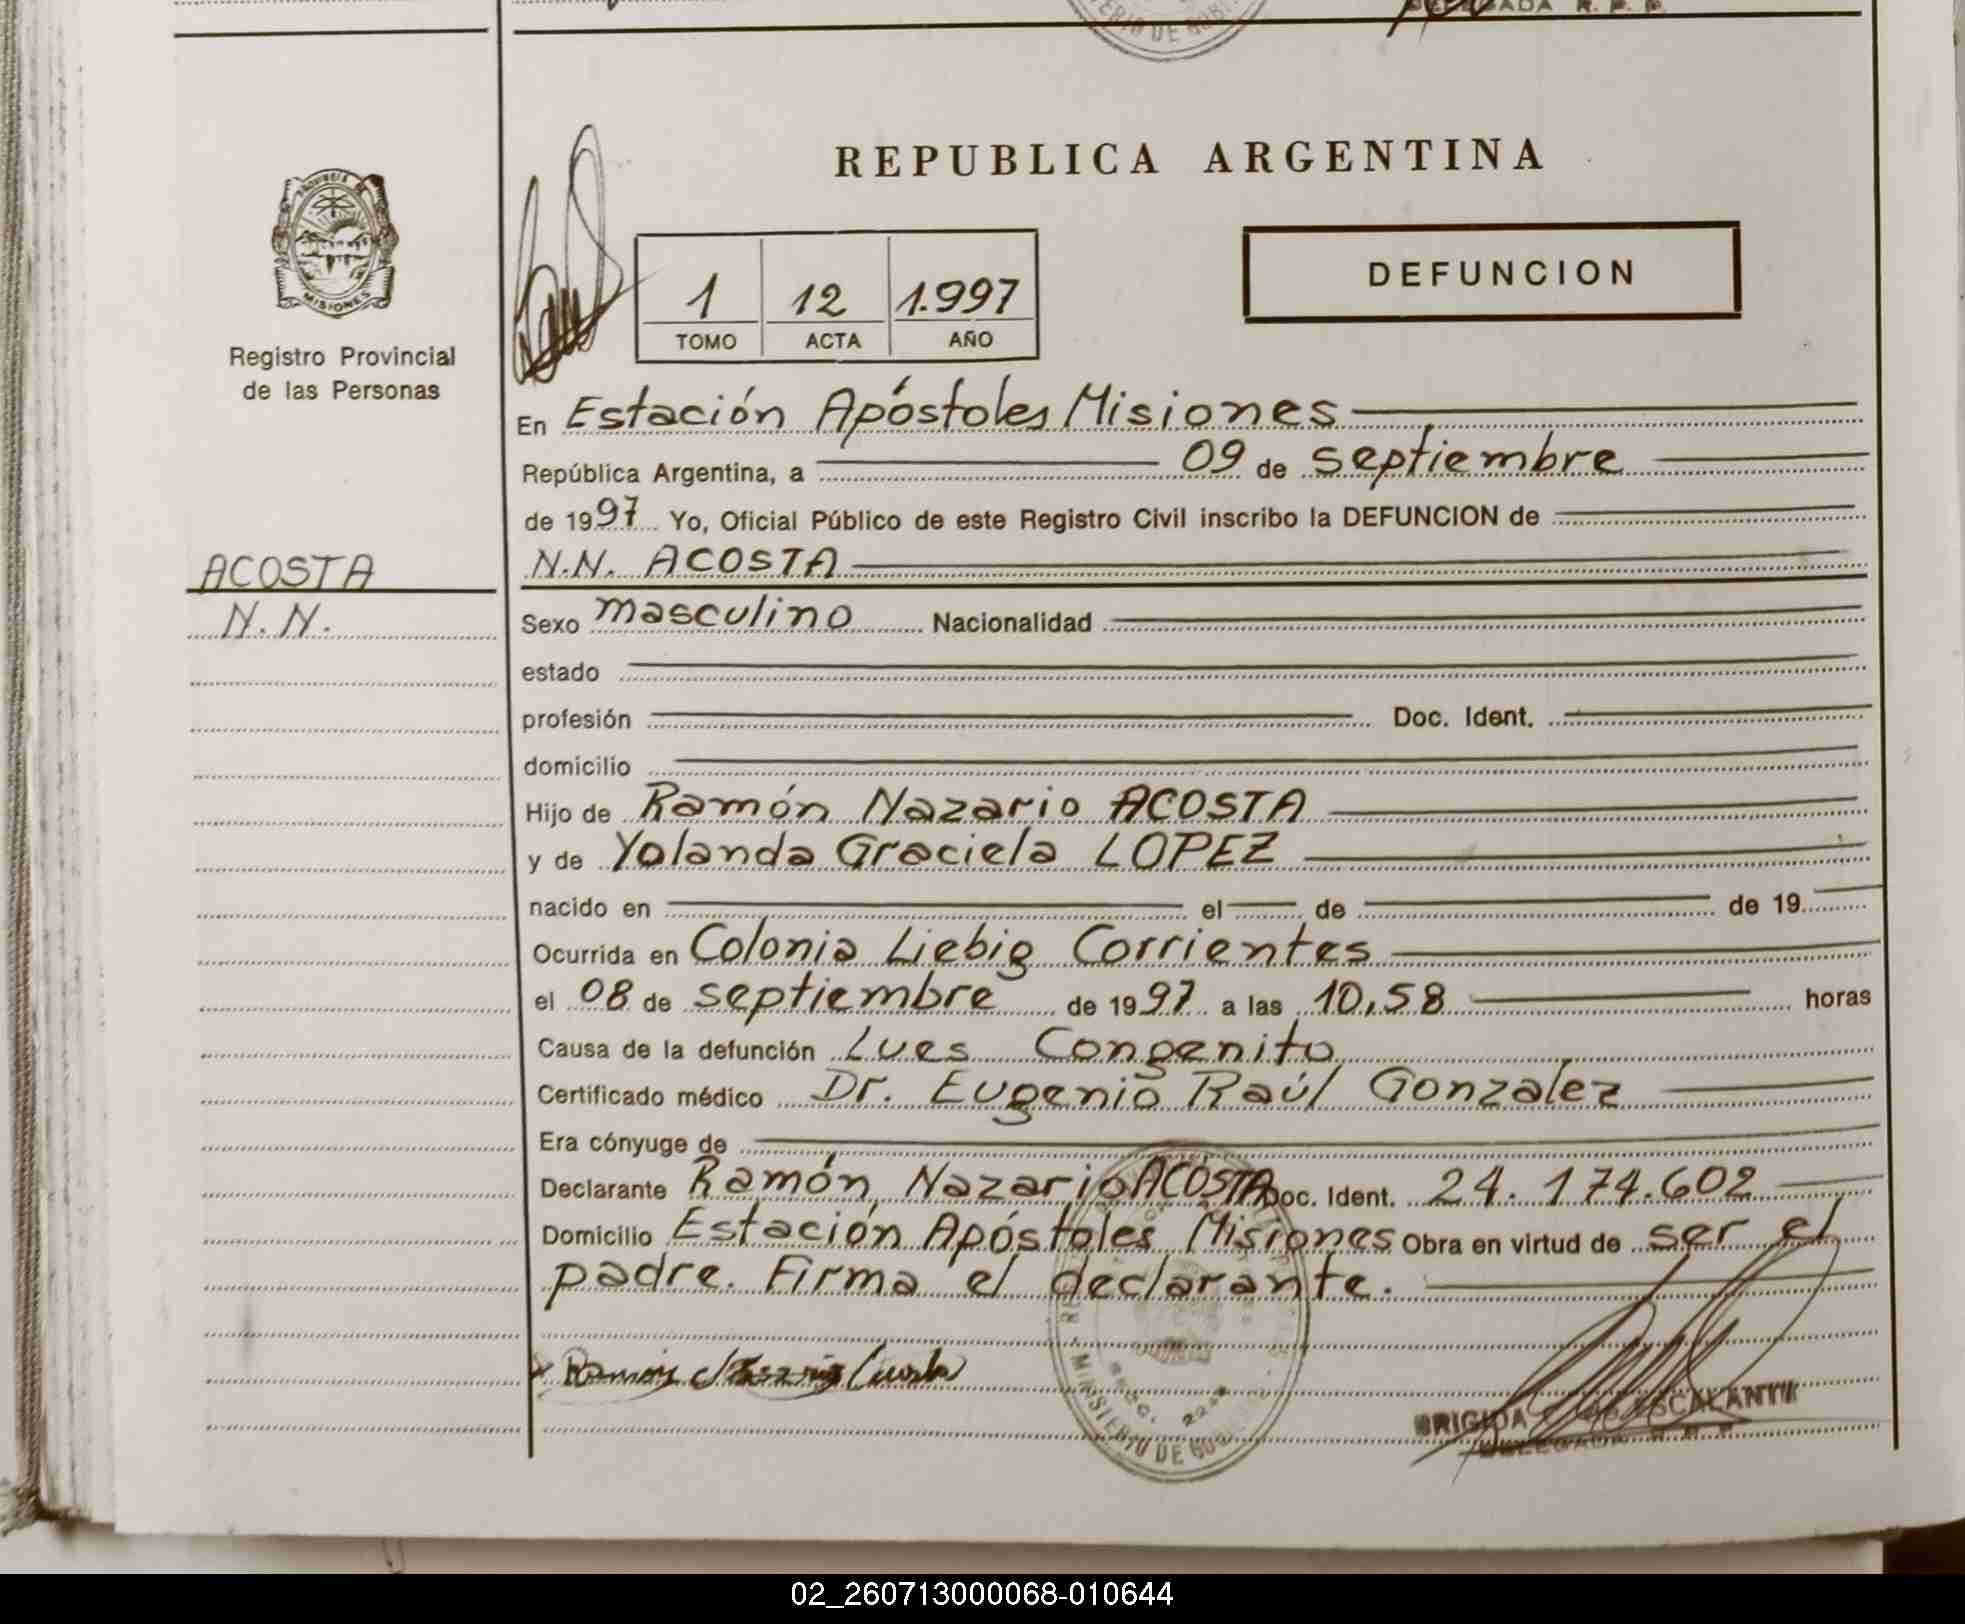 DELEGADA R. P. P.
MINISTERIO DE GOBI
REPUBLICA ARGENTINA
PROVINCIA DE
MISIONES
Registro Provincial
de las Personas
1 12 1.997
TOMO ACTA AÑO
DEFUNCION
En Estación Apóstoles Misiones
República Argentina, a 09 de septiembre
de 1997 Yo, Oficial Público de este Registro Civil inscribo la DEFUNCION de
ACOSTA
N.N.
N.N. ACOSTA
Sexo masculino Nacionalidad
estado
profesión Doc. Ident.
domicilio
Hijo de Ramón Nazario ACOSTA
y de Yolanda Graciela LOPEZ
nacido en el de de 19
Ocurrida en Colonia Liebig Corrientes
el 08 de septiembre de 1997 a las 10,58 horas
Causa de la defunción Lues Congenito
Certificado médico Dr. Eugenio Raúl Gonzalez
Era cónyuge de
Declarante Ramón Nazario ACOSTA Doc. Ident. 24.174.602
Domicilio Estación Apóstoles Misiones Obra en virtud de ser el
padre. Firma el declarante.
Ramon Nazario Acosta
MINISTERIO DE GOB
BRIGIDA ESCALANTE
DELEGADA R. P. P.
02_260713000068-010644